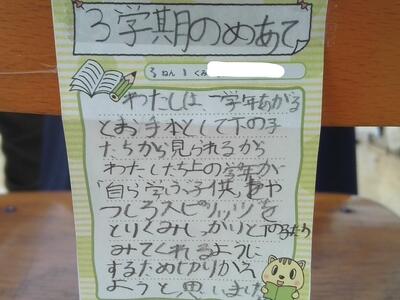 3学期のめあて
3ねん1くみ
わたしは、一学年あがる
とお手本として下の子
たちから見られるから
わたしたち上の学年が
自ら学ぶ子供、
つしろスピリッツを
とりくみしっかりと下の子たち
みてくれるように
するためにがんばり
ようと思いました